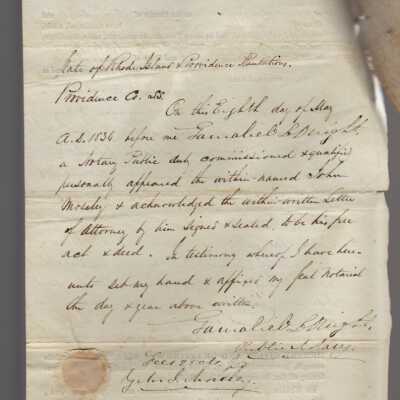 State of Rhode Island & Providence Plantations.
Providence Co. ss.
On this Eighth day of May
A.D. 1836 before me Gamaliel L. Dwight,
a Notary Public duly commissioned & qualified
personally appeared the within-named John
Moseley & acknowledged the within-written Letter
of Attorney by him Signed & sealed, to be his free
act & deed. In testimony whereof I have here-
unto set my hand & affixed my seal notarial
the day & year above written.
Gamaliel L. Dwight,
Public Notary.